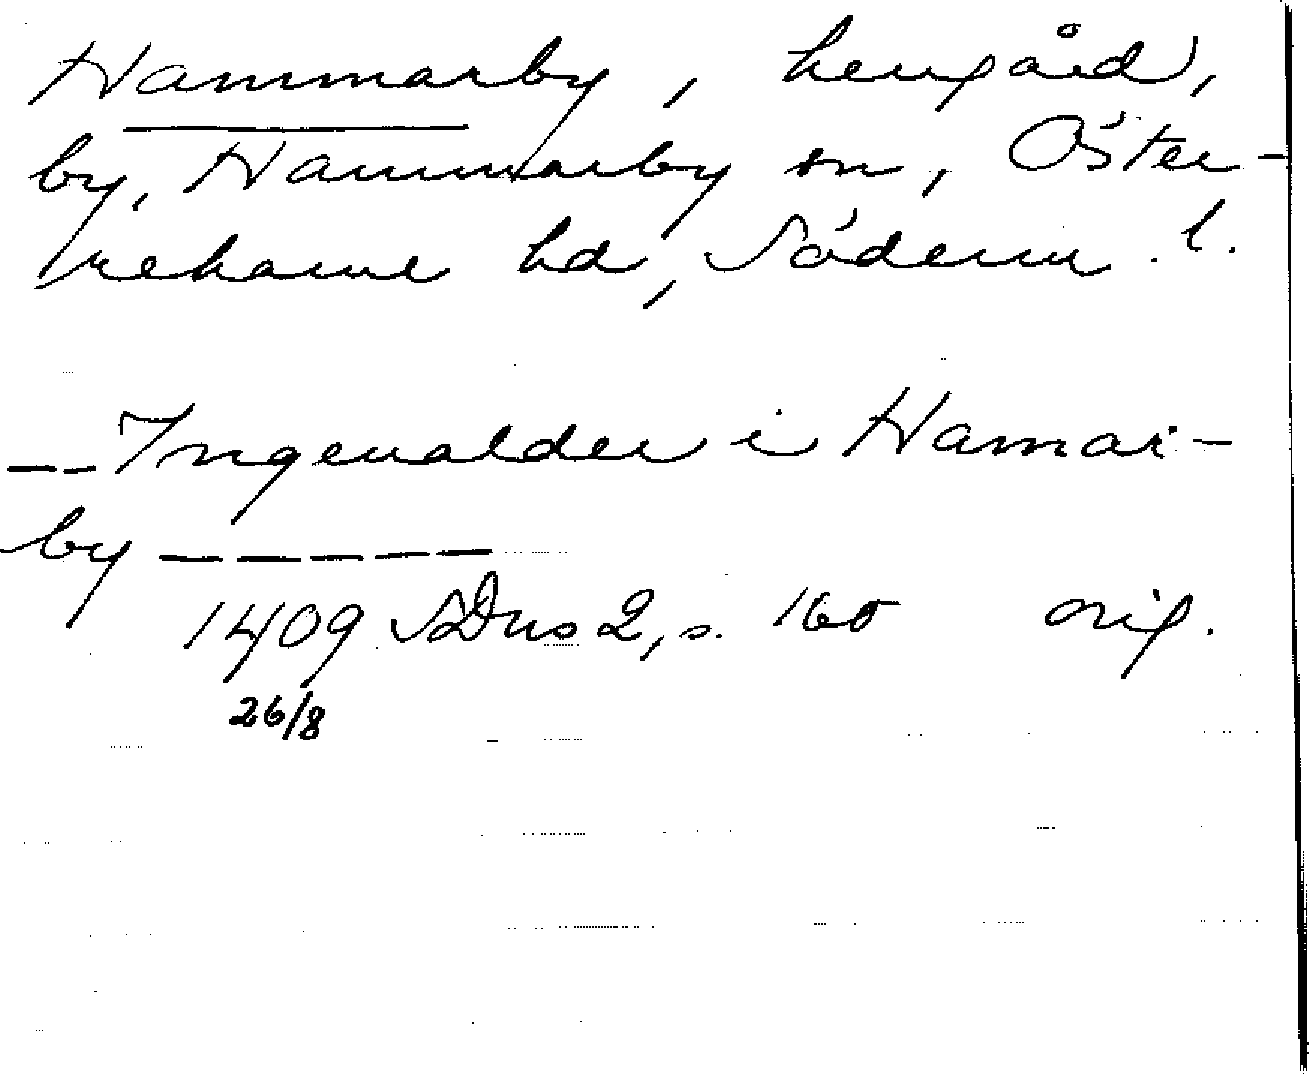 Hammarby, herrgård,
by, Hammarby sn, Öster-
rekarne hd, Söderm. l.
-- Ingeualder i Hamar-
by -----
1409 SDns 2, s. 160 orig.
26/8